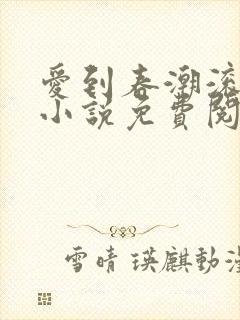 愛到春潮滾
小說免費閱
雪晴 瑛麒動漫